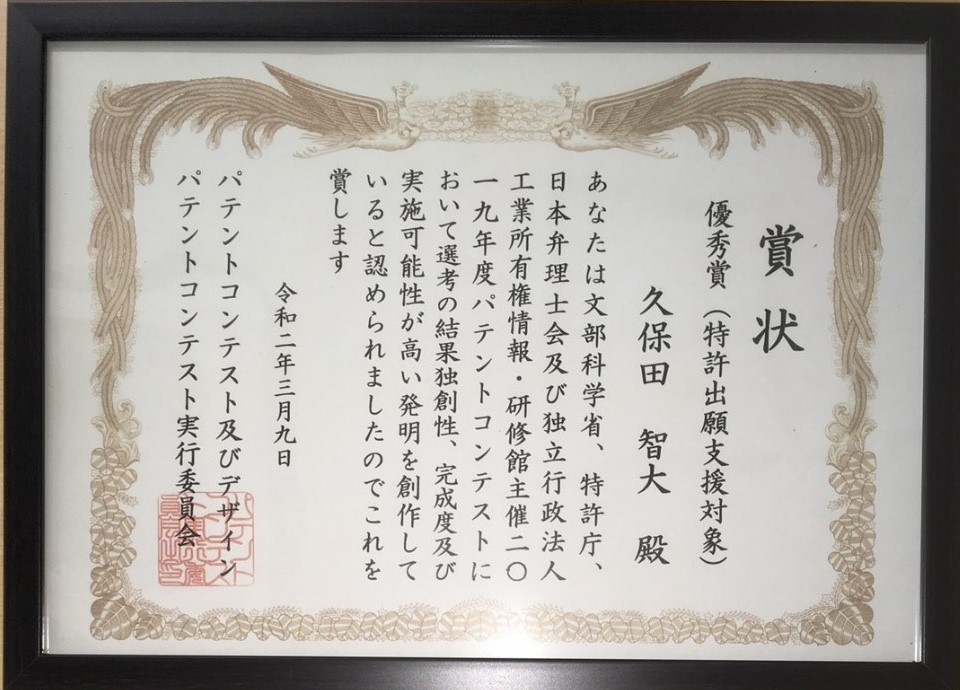 賞状
優秀賞（特許出願支援対象）
久保田 智大 殿
あなたは文部科学省、特許庁、
日本弁理士会及び独立行政法人
工業所有権情報・研修館主催二〇
一九年度パテントコンテストに
おいて選考の結果独創性、完成度及び
実施可能性が高い発明を創作して
いると認められましたのでこれを
賞します
令和二年三月九日
パテントコンテスト及びデザイン
パテントコンテスト実行委員会